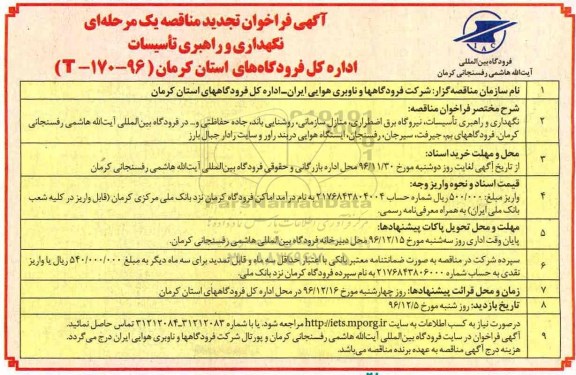 آگهی فراخوان تجدید مناقصه یک مرحله‌ای
نگهداری و راهبری تأسیسات
اداره کل فرودگاه‌های استان کرمان (۹۶-۱۷۰-T)
IAC
فرودگاه بین‌المللی
آیت‌الله هاشمی رفسنجانی کرمان
۱ نام سازمان مناقصه‌گزار: شرکت فرودگاهها و ناوبری هوایی ایران_اداره کل فرودگاههای استان کرمان
۲ شرح مختصر فراخوان مناقصه:
نگهداری و راهبری تأسیسات، نیروگاه برق اضطراری، منازل سازمانی، روشنایی باند، جاده حفاظتی و... در فرودگاه بین‌المللی آیت‌الله هاشمی رفسنجانی
کرمان، فرودگاههای بم، جیرفت، سیرجان، رفسنجان، ایستگاه هوایی دربند راور و سایت رادار جبال بارز
۳ محل و مهلت خرید اسناد:
از تاریخ آگهی لغایت روز دوشنبه مورخ ۹۶/۱۱/۳۰ محل اداره بازرگانی و حقوقی فرودگاه بین‌المللی آیت‌الله هاشمی رفسنجانی کرمان
۴ قیمت اسناد و نحوه واریز وجه:
واریز مبلغ: ۵۰۰/۰۰۰ ریال شماره حساب ۲۱۷۶۸۴۳۸۰۴۰۰۴ به نام درآمد اماکن فرودگاه کرمان نزد بانک ملی مرکزی کرمان (قابل واریز در کلیه شعب
بانک ملی ایران) به همراه معرفی‌نامه رسمی.
۵ مهلت و محل تحویل پاکات پیشنهادها:
پایان وقت اداری روز سه‌شنبه مورخ ۹۶/۱۲/۱۵ محل دبیرخانه فرودگاه بین‌المللی هاشمی رفسنجانی کرمان.
۶ سپرده شرکت در مناقصه به صورت ضمانتنامه معتبر بانکی با اعتبار حداقل سه ماه و قابل تمدید برای سه ماه دیگر به مبلغ ۵۴۰/۰۰۰/۰۰۰ ریال یا واریز
نقدی به حساب شماره ۲۱۷۶۸۴۳۸۰۶۰۰۰ به نام سپرده فرودگاه کرمان نزد بانک ملی.
۷ زمان و محل قرائت پیشنهادها: روز چهارشنبه مورخ ۹۶/۱۲/۱۶ در محل اداره کل فرودگاههای استان کرمان
۸ تاریخ بازدید: روز شنبه مورخ ۹۶/۱۲/۵
۹ درصورت نیاز به کسب اطلاعات به سایت http://iets.mporg.ir مراجعه شود. یا با شماره ۳۱۲۱۲۰۸۳_۳۱۲۱۲۰۸۴ تماس حاصل نمائید.
آگهی فراخوان در سایت فرودگاه بین‌المللی آیت‌الله هاشمی رفسنجانی کرمان و پورتال شرکت فرودگاهها و ناوبری هوایی ایران درج می‌گردد.
هزینه درج آگهی مناقصه به عهده برنده مناقصه می‌باشد.
ParsNamadData